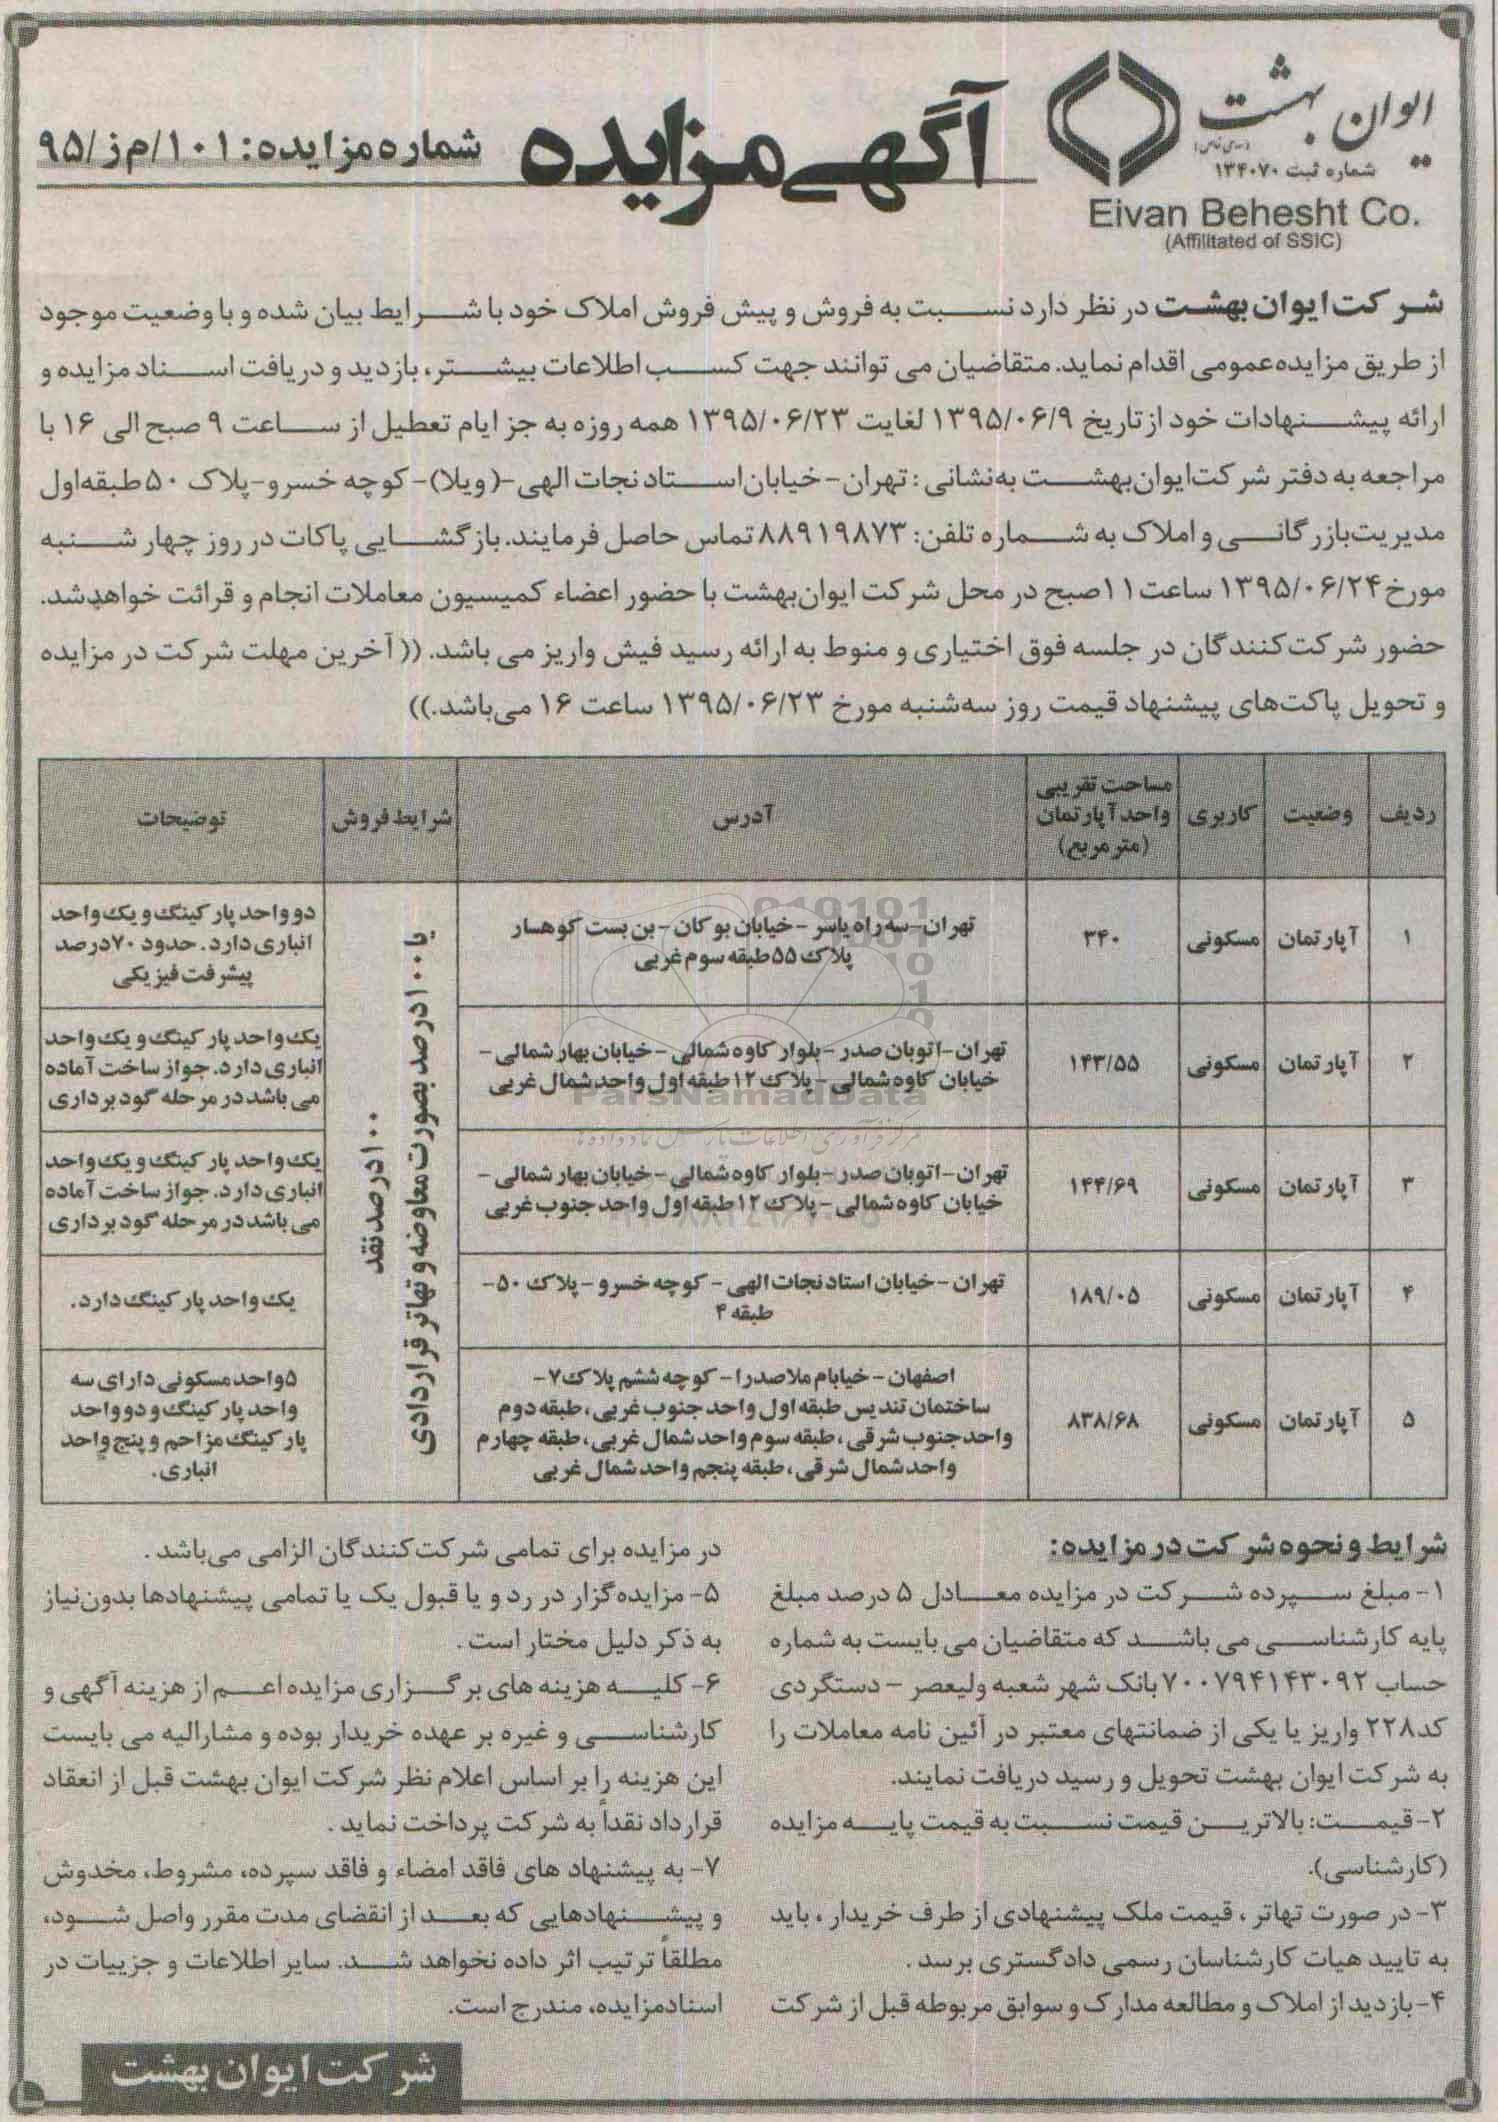 ایوان بهشت
(سهامی خاص)
شماره ثبت ۱۳۴۰۷۰
Eivan Behesht Co.
(Affilitated of SSIC)
آگهی مزایده
شماره مزایده: ۱۰۱/م ز/۹۵
شرکت ایوان بهشت در نظر دارد نسبت به فروش و پیش فروش املاک خود با شرایط بیان شده و با وضعیت موجود
از طریق مزایده عمومی اقدام نماید. متقاضیان می توانند جهت کسب اطلاعات بیشتر، بازدید و دریافت اسناد مزایده و
ارائه پیشنهادات خود از تاریخ ۱۳۹۵/۰۶/۹ لغایت ۱۳۹۵/۰۶/۲۳ همه روزه به جز ایام تعطیل از ساعت ۹ صبح الی ۱۶ با
مراجعه به دفتر شرکت ایوان بهشت به نشانی : تهران - خیابان استاد نجات الهی -( ویلا) - کوچه خسرو - پلاک ۵۰ طبقه اول
مدیریت بازرگانی و املاک به شماره تلفن: ۸۸۹۱۹۸۷۳ تماس حاصل فرمایند. بازگشایی پاکات در روز چهار شنبه
مورخ ۱۳۹۵/۰۶/۲۴ ساعت ۱۱ صبح در محل شرکت ایوان بهشت با حضور اعضاء کمیسیون معاملات انجام و قرائت خواهد شد.
حضور شرکت کنندگان در جلسه فوق اختیاری و منوط به ارائه رسید فیش واریز می باشد. (( آخرین مهلت شرکت در مزایده
و تحویل پاکت‌های پیشنهاد قیمت روز سه‌شنبه مورخ ۱۳۹۵/۰۶/۲۳ ساعت ۱۶ می‌باشد.))
ردیف | وضعیت | کاربری | مساحت تقریبی واحد آپارتمان (متر مربع) | آدرس | شرایط فروش | توضیحات
۱ | آپارتمان | مسکونی | ۳۴۰ | تهران-سه راه یاسر - خیابان بوکان - بن بست کوهسار پلاک ۵۵ طبقه سوم غربی | دو واحد پارکینگ و یک واحد انباری دارد. حدود ۷۰ درصد پیشرفت فیزیکی
۲ | آپارتمان | مسکونی | ۱۴۳/۵۵ | تهران-اتوبان صدر - بلوار کاوه شمالی - خیابان بهار شمالی - خیابان کاوه شمالی - پلاک ۱۲ طبقه اول واحد شمال غربی | یک واحد پارکینگ و یک واحد انباری دارد. جواز ساخت آماده می باشد در مرحله گود برداری
۳ | آپارتمان | مسکونی | ۱۴۴/۶۹ | تهران-اتوبان صدر - بلوار کاوه شمالی - خیابان بهار شمالی - خیابان کاوه شمالی - پلاک ۱۲ طبقه اول واحد جنوب غربی | یک واحد پارکینگ و یک واحد انباری دارد. جواز ساخت آماده می باشد در مرحله گود برداری
۴ | آپارتمان | مسکونی | ۱۸۹/۰۵ | تهران - خیابان استاد نجات الهی - کوچه خسرو - پلاک ۵۰ - طبقه ۴ | یک واحد پارکینگ دارد.
۵ | آپارتمان | مسکونی | ۸۳۸/۶۸ | اصفهان - خیابام ملاصدرا - کوچه ششم پلاک ۷ - ساختمان تندیس طبقه اول واحد جنوب غربی، طبقه دوم واحد جنوب شرقی، طبقه سوم واحد شمال غربی، طبقه چهارم واحد شمال شرقی، طبقه پنجم واحد شمال غربی | ۵ واحد مسکونی دارای سه واحد پارکینگ و دو واحد پارکینگ مزاحم و پنج واحد انباری.
۱۰۰ درصد نقد
یا ۱۰۰ درصد بصورت معاوضه و تهاتر قراردادی
ParsNamadData
شرایط و نحوه شرکت در مزایده:
۱- مبلغ سپرده شرکت در مزایده معادل ۵ درصد مبلغ
پایه کارشناسی می باشد که متقاضیان می بایست به شماره
حساب ۷۰۰۷۹۴۱۴۳۰۹۲ بانک شهر شعبه ولیعصر - دستگردی
کد۲۲۸ واریز یا یکی از ضمانتهای معتبر در آئین نامه معاملات را
به شرکت ایوان بهشت تحویل و رسید دریافت نمایند.
۲- قیمت: بالاترین قیمت نسبت به قیمت پایه مزایده
(کارشناسی).
۳- در صورت تهاتر ، قیمت ملک پیشنهادی از طرف خریدار ، باید
به تایید هیات کارشناسان رسمی دادگستری برسد .
۴- بازدید از املاک و مطالعه مدارک و سوابق مربوطه قبل از شرکت
در مزایده برای تمامی شرکت کنندگان الزامی می‌باشد .
۵- مزایده‌گزار در رد و یا قبول یک یا تمامی پیشنهادها بدون نیاز
به ذکر دلیل مختار است .
۶- کلیه هزینه های برگزاری مزایده اعم از هزینه آگهی و
کارشناسی و غیره بر عهده خریدار بوده و مشارالیه می بایست
این هزینه را بر اساس اعلام نظر شرکت ایوان بهشت قبل از انعقاد
قرارداد نقداً به شرکت پرداخت نماید .
۷- به پیشنهاد های فاقد امضاء و فاقد سپرده، مشروط، مخدوش
و پیشنهادهایی که بعد از انقضای مدت مقرر واصل شود،
مطلقاً ترتیب اثر داده نخواهد شد. سایر اطلاعات و جزییات در
اسناد مزایده، مندرج است.
شرکت ایوان بهشت